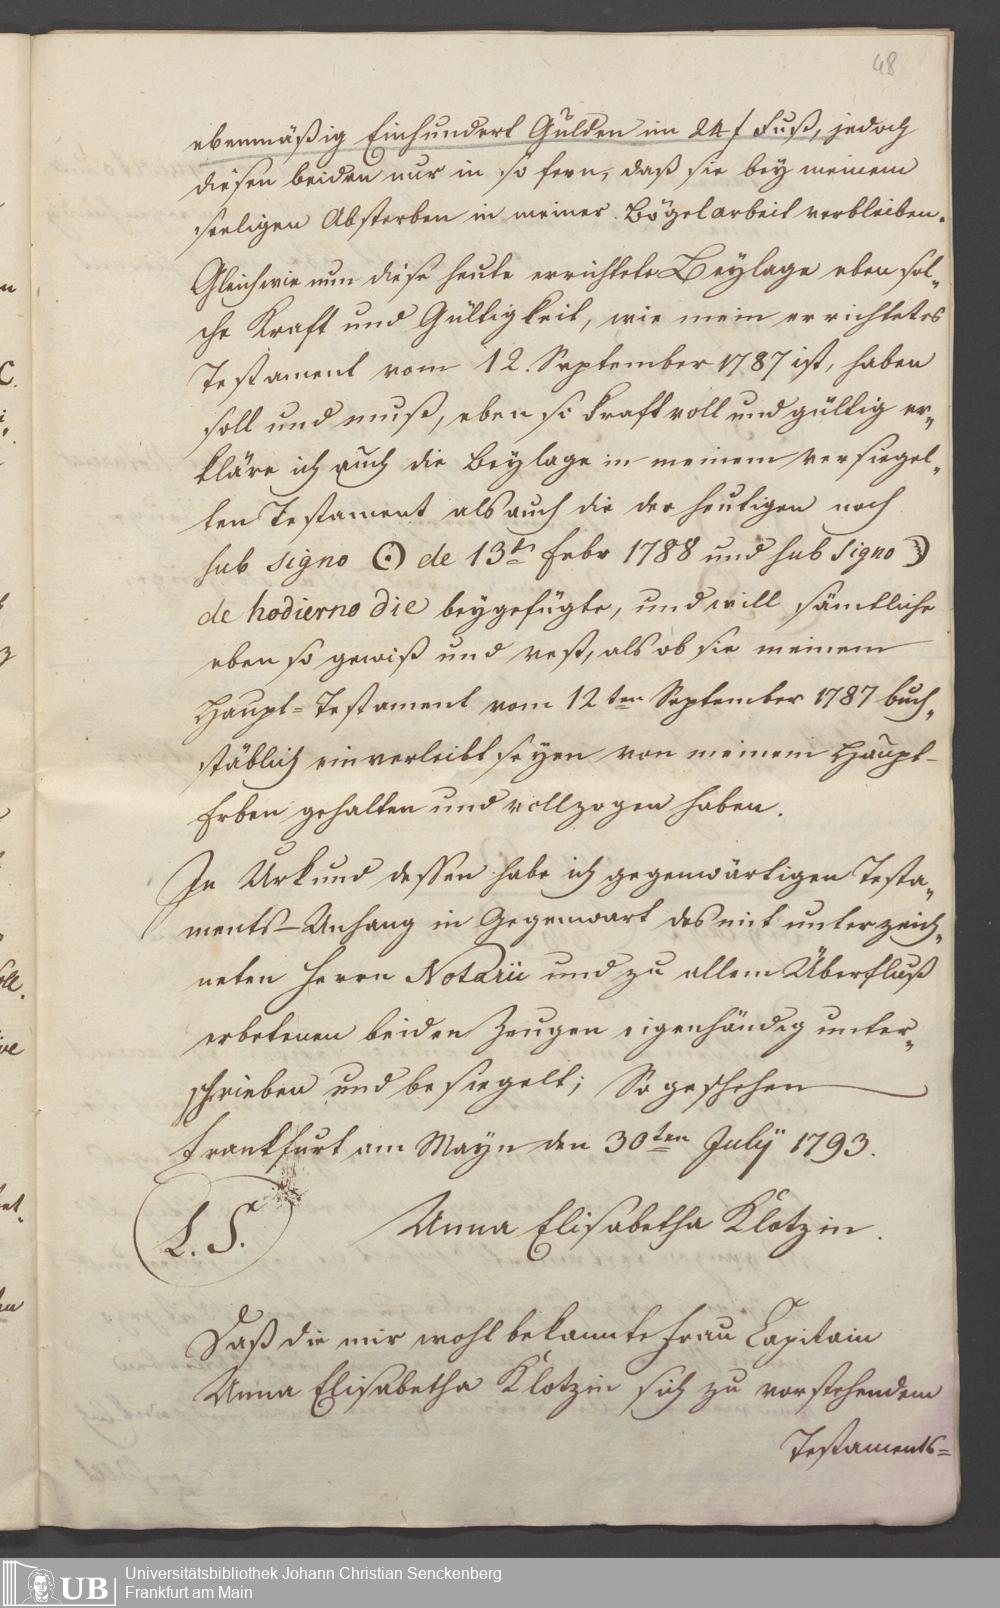 48
ebenmäßig Einhundert Gulden im 24 f Fuß, jedoch
diesen beiden nur in so fern, daß sie bey meinem
seeligen Absterben in meiner Bögelarbeit verbleiben.
Gleichwie nun diese heute errichtete Beylage eben sol„
che Kraft und Gültigkeit, wie mein errichtetes
Testament vom 12. September 1787 ist, haben
soll und muß, eben so kraftvoll und gültig er„
kläre ich auch die Beylage in meinem versiegel„
ten Testament als auch die der heutigen noch
sub signo ☉ de 13t Febr 1788 und sub signo ☽
de hodierno die beygefügte, und will sämtliche
eben so gewiß und vest, als ob sie meinem
Haupt=Testament vom 12ten September 1787 buch„
stäblich einverleibt seyen von meinem Haupt-
Erben gehalten und vollzogen haben.
In Urkund dessen habe ich gegenwärtigen Testa„
ments-Anhang in Gegenwart des mit unterzeich„
neten Herrn Notarii und zu allem Überfluß
erbetenen beiden Zeugen eigenhändig unter„
schrieben und besiegelt; So geschehen
Frankfurt am Mayn den 30ten Julÿ 1793.
L. S. Anna Elisabetha Klotzin.
Daß die mir wohl bekannte Frau Capitain
Anna Elisabetha Klotzin sich zu vorstehendem
Testaments=
UB Universitätsbibliothek Johann Christian Senckenberg
Frankfurt am Main